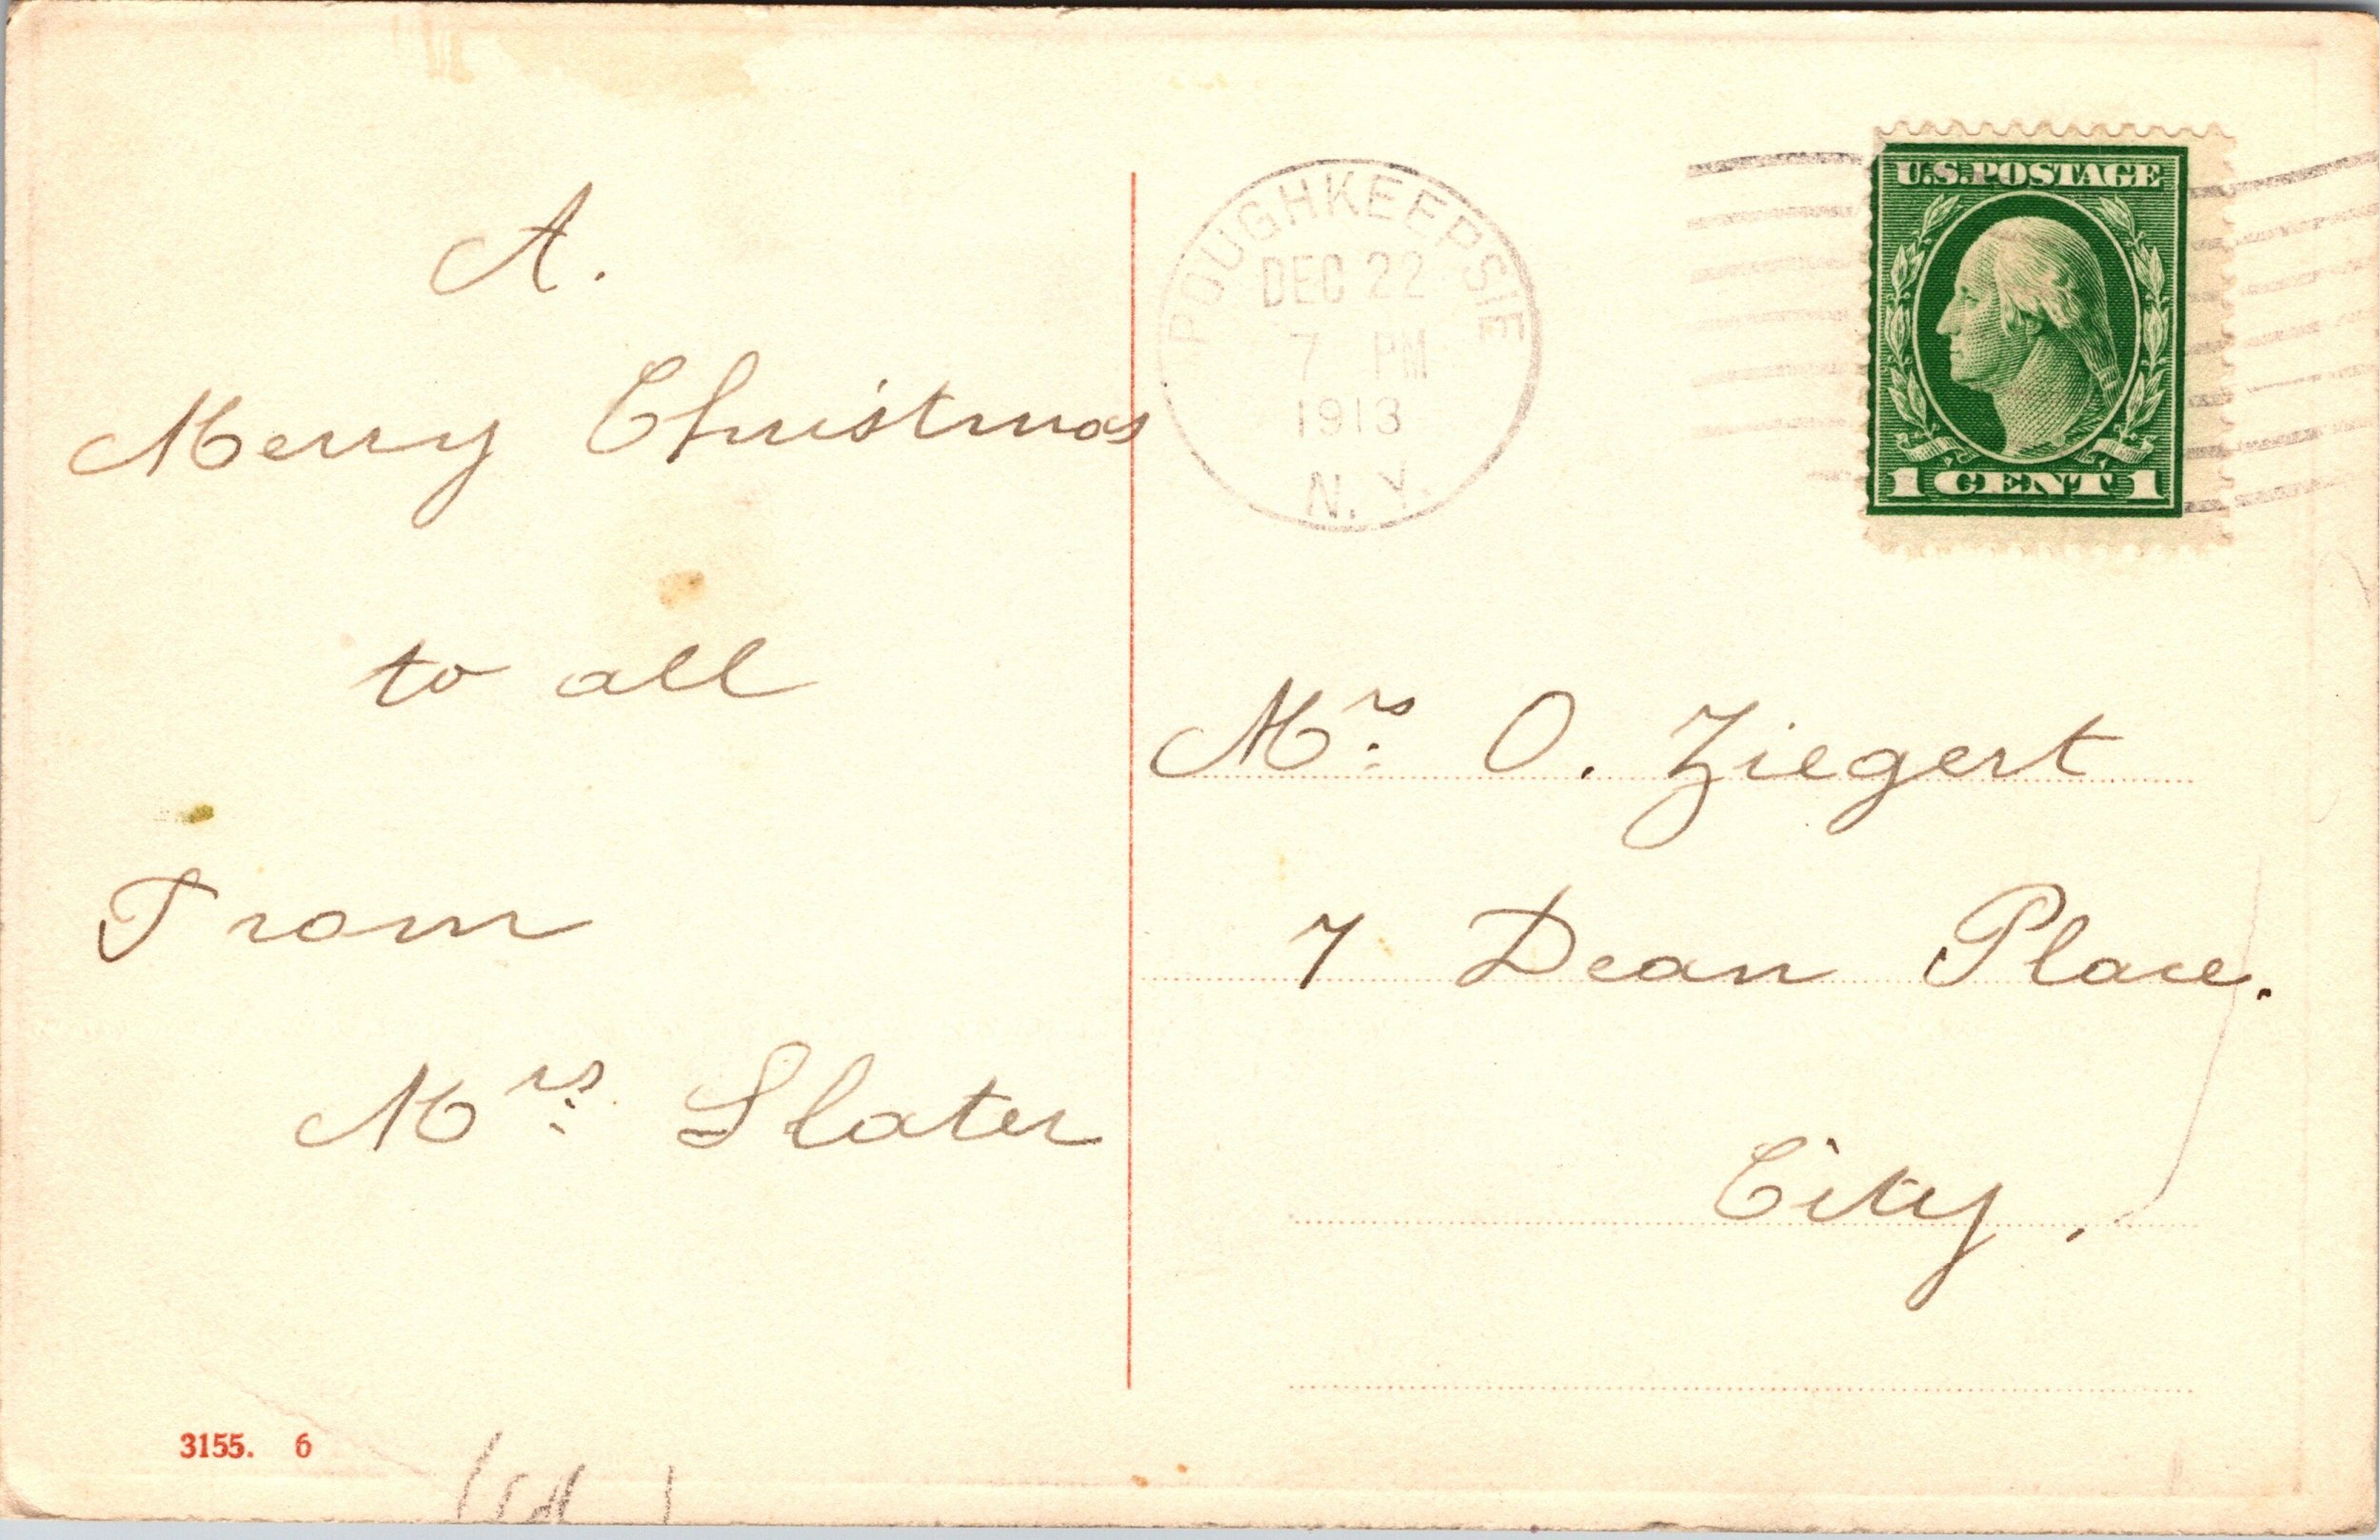 A.
Merry Christmas
to all
From
Mrs. Slater
3155. 6
POUGHKEEPSIE
DEC 22
7 PM
1913
N. Y.
U.S. POSTAGE
1 CENT 1
Mrs. O. Ziegert
7 Dean Place.
City.